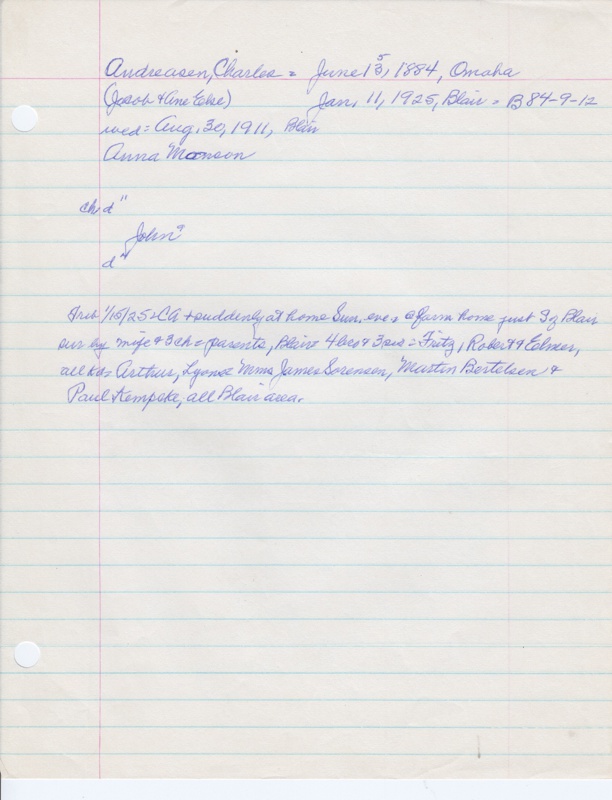 Andreasen, Charles = June 15, 1884, Omaha
(Jacob & Ane Else) Jan. 11, 1925, Blair = B 84-9-12
wed = Aug. 30, 1911, Blair
Anna Monson
ch, d"
John?
d"
Trib 1/15/25 = CA + suddenly at home Sun. eve = farm home just S of Blair
sur by wife & 3 ch = parents, Blair = 4 bro & 3 sis = Fritz, Robert & Edmer,
all Arthur, Lyons = Mmes James Sorensen, Martin Bertelsen &
Paul Kempcke, all Blair area.